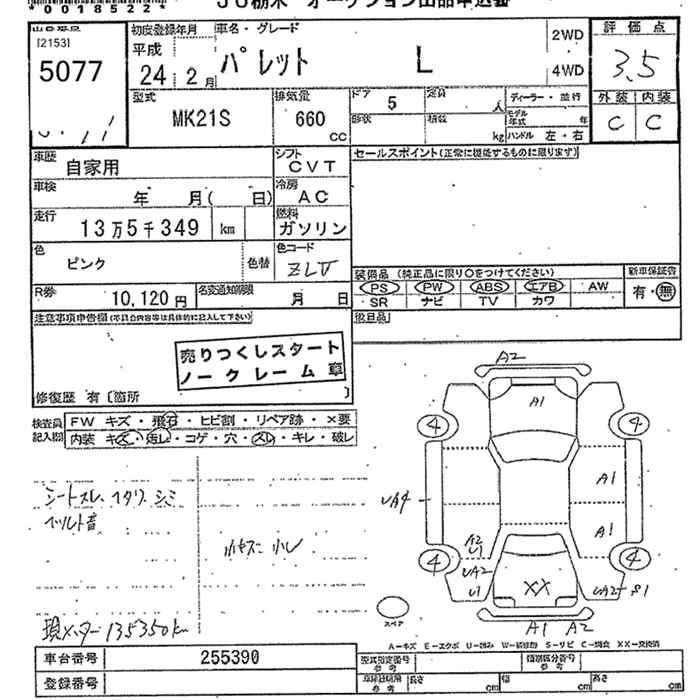 *0018522*
JU栃木 オークション出品申込書
[2153]
5077
初度登録年月
平成
24年2月
車名・グレード
パレット L
2WD
4WD
評価点
3.5
外装 内装
C C
型式
MK21S
排気量
660
cc
ドア
5
定員
人
形状
積載
kg
ディーラー・並行
モデル年式 年
ハンドル 左・右
車歴
自家用
シフト
CVT
セールスポイント(正常に機能するものに限ります)
車検
年 月( 日)
冷房
AC
走行
13万5千349 km
燃料
ガソリン
色
ピンク
色替
色コード
ZLV
装備品 (純正品に限り○をつけてください)
PS PW ABS エアB AW
SR ナビ TV カワ
新車保証書
有・無
R券
10,120円
名変通知期限
月 日
注意事項申告欄(不具合内容等は具体的に記入して下さい)
後日品
売りつくしスタート
ノークレーム車
修復歴 有〔箇所 〕
検査員
記入欄
FW キズ・飛石・ヒビ割・リペア跡・×要
内装 キズ・汚レ・コゲ・穴・スレ・キレ・破レ
シートスレ、ヘタリ、シミ
ベルト音
小キズ 小レ
現メーター 135350km
A2
A1
4 4
A1
UA4
A1
A2
U1
4 4
UA2
U1
XX
UA2 S1
A1 A2
スペア
A=キズ E=エクボ U=凹み W=補修跡 S=サビ C=腐食 XX=交換済
車台番号
255390
型式指定番号
参考
類別区分番号
参考
登録番号
車輌諸元
参考
長さ cm
幅 cm
高さ cm